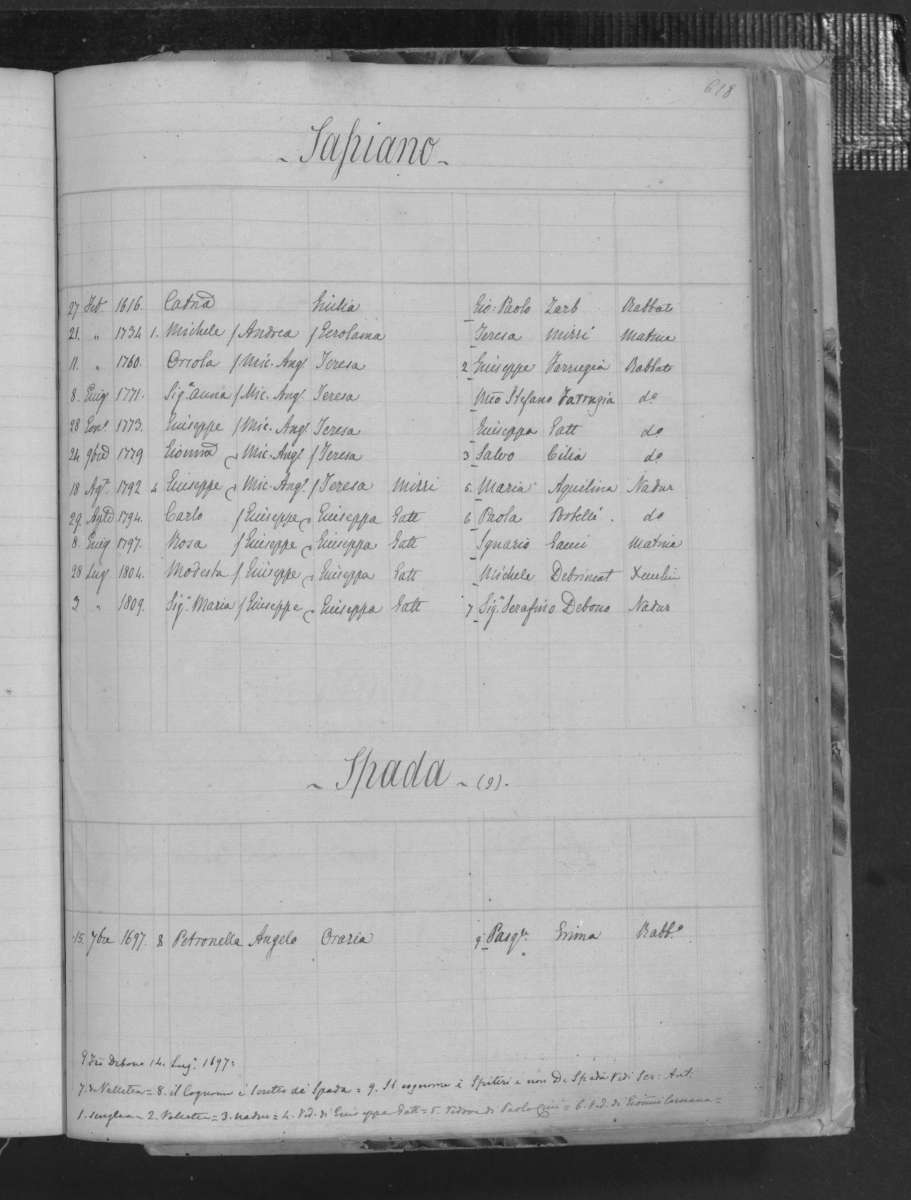 618
- Sapiano -
27 Feb 1616. Catnd Giulia Gio. Paolo Zarb Rabbato
21. " 1734 1. Michele / Andrea / Gerolama Teresa Mirri Matrice
11. " 1760. Orsola / Mic. Angl Teresa 2 Giuseppe Farrugia Rabbato
8. Giug 1771. Siga Anna / Mic. Angl. Teresa Mro Stefano Farrugia do
28 Genn 1773. Giuseppe / Mic. Angl Teresa Giuseppa Gatt do
24 9bre 1779 Gionna Mic. Angl / Teresa 3 Salvo Cilia do
18 Agt. 1792 4 Giuseppe Mic. Angl. / Teresa Mirri 5. Maria Aquilina Nadur
29 1794. Carlo / Giuseppe Giuseppa Gatt 6 Paola Portelli. do
8. Giug 1797. Rosa / Giuseppe Giuseppa Gatt Ignazio Gauci Matrice
28 Lug 1804. Modesta / Giuseppe Giuseppa Gatt Michele Debrincat Xeuchia
3 " 1809. Siga. Maria / Giuseppe Giuseppa Gatt 7 Sigr. Serafino Debono Nadur
- Spada - (9).
15. 7bre 1697. 8 Petronella Angelo Orazia 9 Pasqle Grima Rabbo
Debono 14. Lug. 1697=
7. di Valletta = 8. il Cognome è scritto de Spada = 9. Il cognome è Spiteri e non De Spada V. di Ser. Ant.
1. Senglea = 2. Valletta = 3. Nadur = 4. Vid. di Giuseppa Gatt = 5. Vedova di Paolo = 6. Vid. di